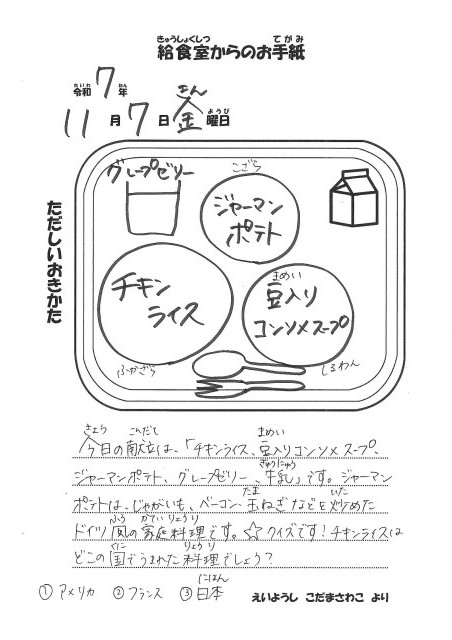 きゅうしょくしつ てがみ
給食室からのお手紙
れいわ ねん
令和7年
きん ようび
11月7日金曜日
ただしいおきかた
グレープゼリー
こざら
ジャーマン
ポテト
チキン
ライス
まめい
豆入り
コンソメスープ
ふかざら
しるわん
きょう こんだて まめい
今日の献立は、「チキンライス、豆入りコンソメスープ、
ぎゅうにゅう
ジャーマンポテト、グレープゼリー、牛乳」です。ジャーマン
たま いた
ポテトは、じゃがいも、ベーコン、玉ねぎなどを炒めた
ふう かていりょうり
ドイツ風の家庭料理です。☆クイズです！チキンライスは
くに りょうり
どこの国でうまれた料理でしょう？
にほん
①アメリカ ②フランス ③日本
えいようし こだまさわこ より